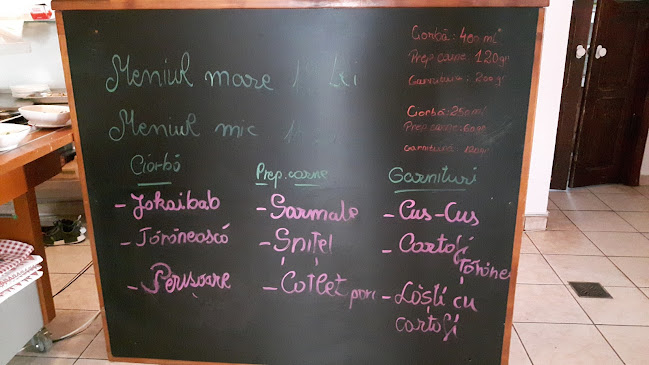 Meniul mare 1 lei
Meniul mic 1
Ciorbă: 400 ml
Prep carne 120gr
Garnitură: 200gr
Ciorbă: 250ml
Prep carne: 60gr
Garnitură 120gr
Ciorbă
- Jokaibab
- Tărănească
- Perișoare
Prep. carne
- Sarmale
- Șnițel
- Cotlet porc
Garnituri
- Cus-Cus
- Cartofi
- Lăști cu
cartofi